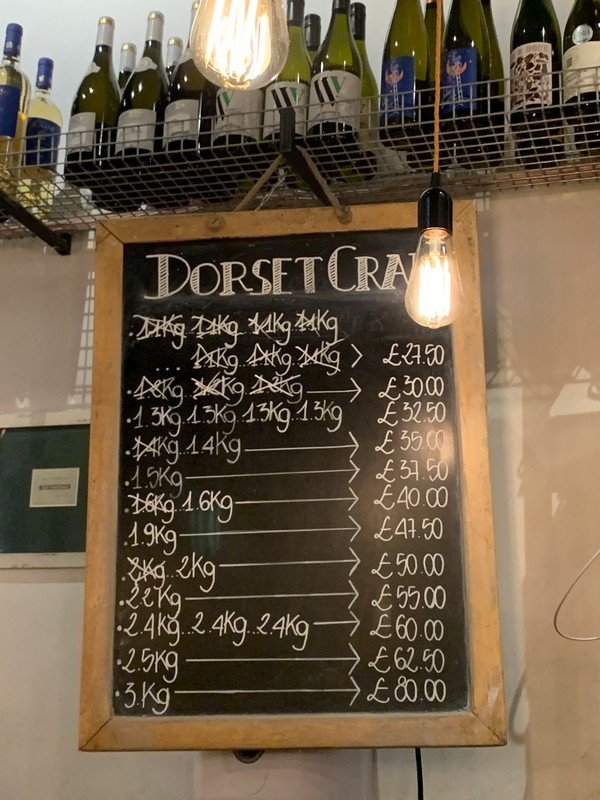 DORSET CRA
.1.1Kg..1.1Kg..1.1Kg..1.1Kg
...1.1Kg..1.1Kg..1.1Kg > £27.50
.1.2Kg..1.2Kg..1.2Kg → £30.00
.1.3Kg..1.3Kg..1.3Kg..1.3Kg £32.50
.1.4Kg..1.4Kg → £35.00
.1.5Kg → £37.50
.1.6Kg...1.6Kg → £40.00
.1.9Kg → £47.50
.2Kg...2Kg → £50.00
.2.2Kg → £55.00
.2.4Kg...2.4Kg...2.4Kg → £60.00
.2.5Kg → £62.50
.3.Kg → £80.00